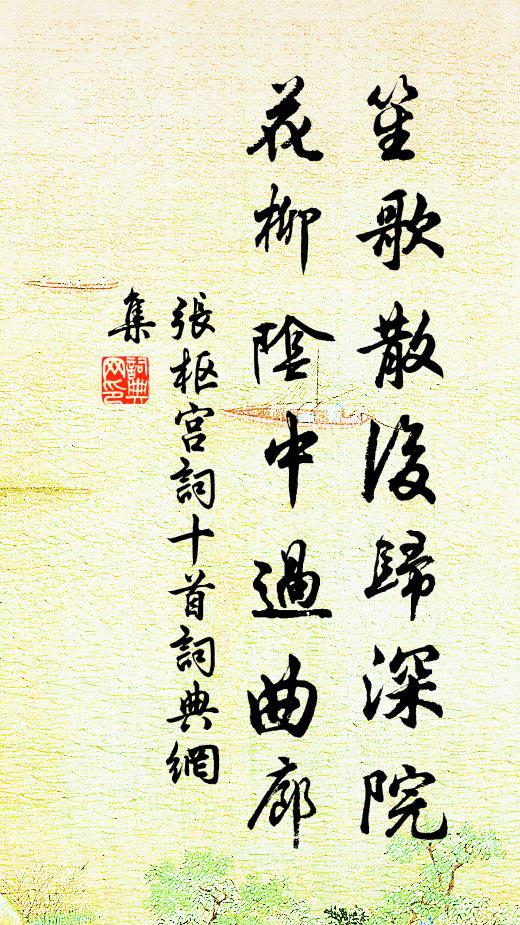 笙歌散後歸深院
花柳陰中過曲廊
張枢宮詞十首詞典網
集
詞典
网印